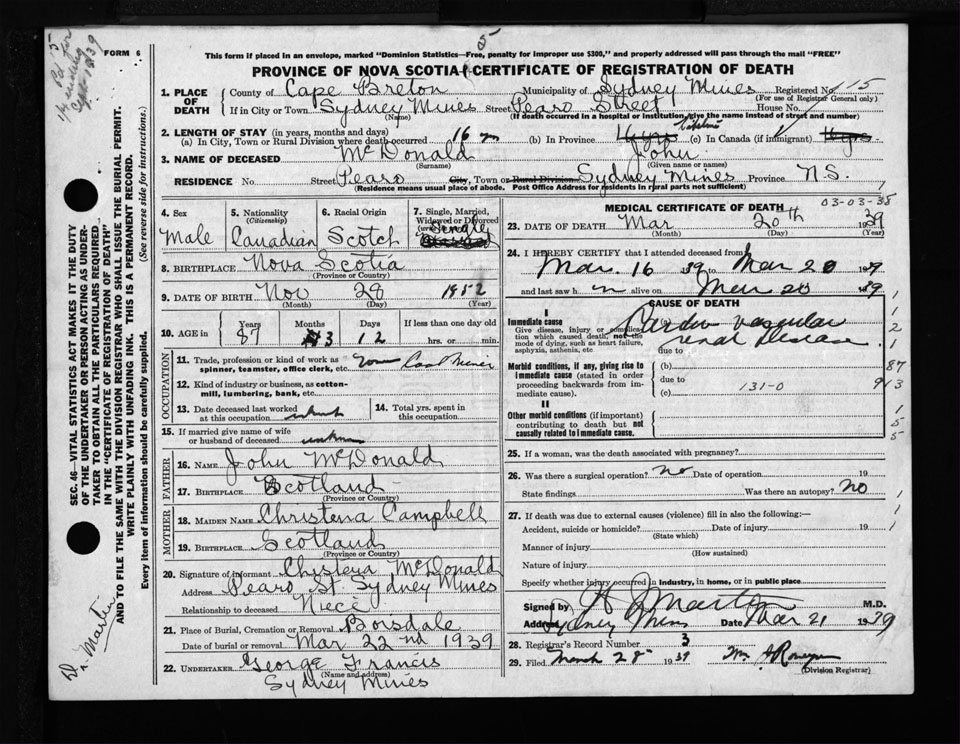 FORM 6
5
This form if placed in an envelope, marked "Dominion Statistics—Free, penalty for improper use $300," and properly addressed will pass through the mail "FREE"
PROVINCE OF NOVA SCOTIA CERTIFICATE OF REGISTRATION OF DEATH
1. PLACE OF DEATH County of Cape Breton Municipality of Sydney Mines Registered No. 115
(For use of Registrar General only)
If in City or Town Sydney Mines Street Street House No.
(Name) (If death occurred in a hospital or institution, give the name instead of street and number)
2. LENGTH OF STAY (in years, months and days)
(a) In City, Town or Rural Division where death occurred 16 (b) In Province (c) In Canada (if immigrant)
3. NAME OF DECEASED McDonald John
(Surname) (Given name or names)
RESIDENCE No. Street City, Town or Rural Division Sydney Mines Province N.S.
(Residence means usual place of abode. Post Office Address for residents in rural parts not sufficient)
4. Sex Male
5. Nationality (Citizenship) Canadian
6. Racial Origin Scotch
7. Single, Married, Widowed or Divorced Single
8. BIRTHPLACE Nova Scotia
(Province or Country)
9. DATE OF BIRTH Nov 28 1852
(Month) (Day) (Year)
10. AGE in Years Months Days If less than one day old
87 3 12 hrs. or min.
OCCUPATION
11. Trade, profession or kind of work as spinner, teamster, office clerk, etc. Coal Miner
12. Kind of industry or business, as cotton-mill, lumbering, bank, etc.
13. Date deceased last worked at this occupation
14. Total yrs. spent in this occupation
15. If married give name of wife or husband of deceased
FATHER
16. NAME John McDonald
17. BIRTHPLACE Scotland
(Province or Country)
MOTHER
18. MAIDEN NAME Christena Campbell
19. BIRTHPLACE Scotland
(Province or Country)
20. Signature of informant Christena McDonald
Address St. Sydney Mines
Relationship to deceased Niece
21. Place of Burial, Cremation or Removal Boisdale
Date of burial or removal Mar 22nd 1939
22. UNDERTAKER George Francis
(Name and address)
Sydney Mines
MEDICAL CERTIFICATE OF DEATH 03-03-38
23. DATE OF DEATH Mar 20th 1939
(Month) (Day) (Year)
24. I HEREBY CERTIFY that I attended deceased from
Mar. 16 1939 to Mar 20 1939
and last saw h m alive on Mar 20 1939
CAUSE OF DEATH
I
Immediate cause (a) Cardio vascular
Give disease, injury or complication which caused death, not the mode of dying, such as heart failure, asphyxia, asthenia, etc renal Disease
due to
Morbid conditions, if any, giving rise to immediate cause (stated in order proceeding backwards from immediate cause). (b) 87
due to 131-0 913
(c)
II
Other morbid conditions (if important) contributing to death but not causally related to immediate cause.
25. If a woman, was the death associated with pregnancy?
26. Was there a surgical operation? no Date of operation 19
State findings Was there an autopsy? no
27. If death was due to external causes (violence) fill in also the following:—
Accident, suicide or homicide? Date of injury 19
(State which)
Manner of injury
(How sustained)
Nature of injury
Specify whether injury occurred in industry, in home, or in public place
Signed by Martin M.D.
Address Sydney Mines Date Mar 21 1939
28. Registrar's Record Number 3
29. Filed March 28 1939
(Division Registrar)
SEC. 46—VITAL STATISTICS ACT MAKES IT THE DUTY
OF THE UNDERTAKER OR PERSON ACTING AS UNDERTAKER TO OBTAIN ALL THE PARTICULARS REQUIRED
IN THE "CERTIFICATE OF REGISTRATION OF DEATH"
AND TO FILE THE SAME WITH THE DIVISION REGISTRAR WHO SHALL ISSUE THE BURIAL PERMIT.
WRITE PLAINLY WITH UNFADING INK. THIS IS A PERMANENT RECORD.
Every item of information should be carefully supplied. (See reverse side for instructions.)
Dr. Martin